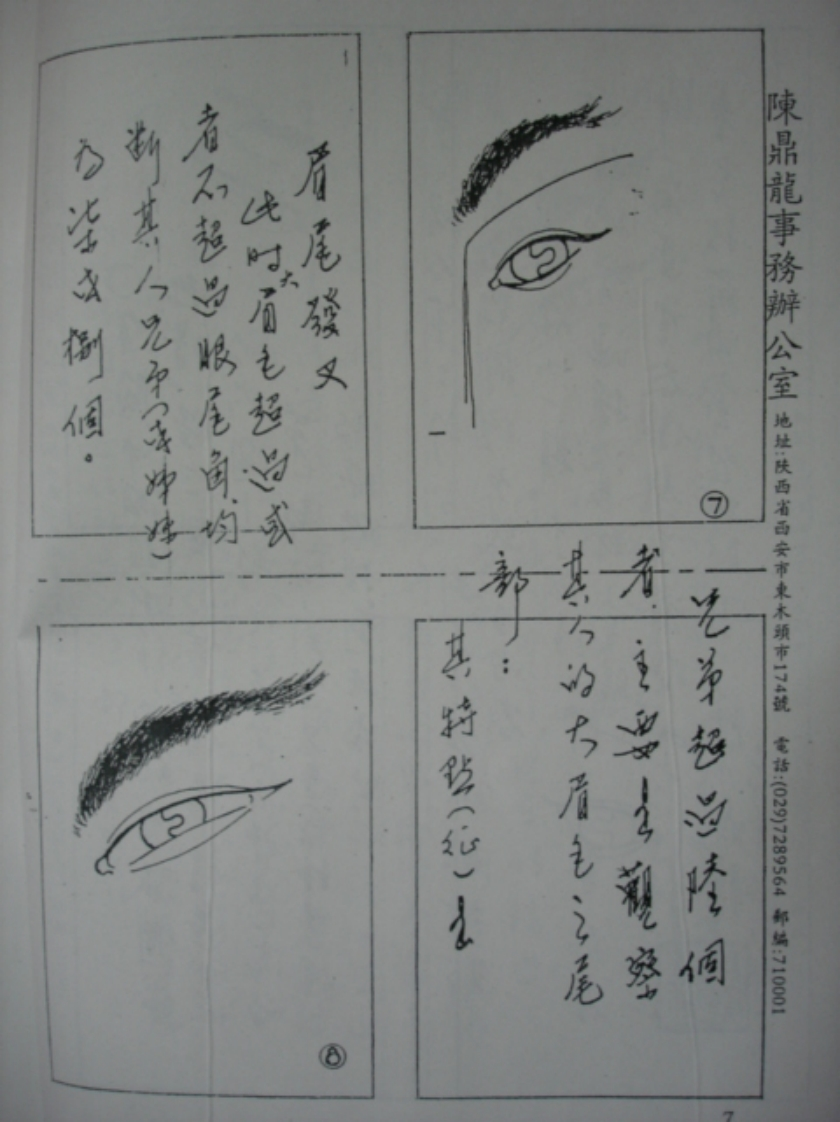 陳鼎龍事務辦公室 地址:陝西省西安市東木頭市174號 電話:(029)7289564 郵編:710001
⑦
兄弟超過陸個
者.主要是觀察
其人的大眉毛之尾
部:
其特點(征)是
眉尾發叉
此时大眉毛超過或
者不超過眼尾角.均
斷其人兄弟(或姊妹)
为柒或捌個。
⑧
7